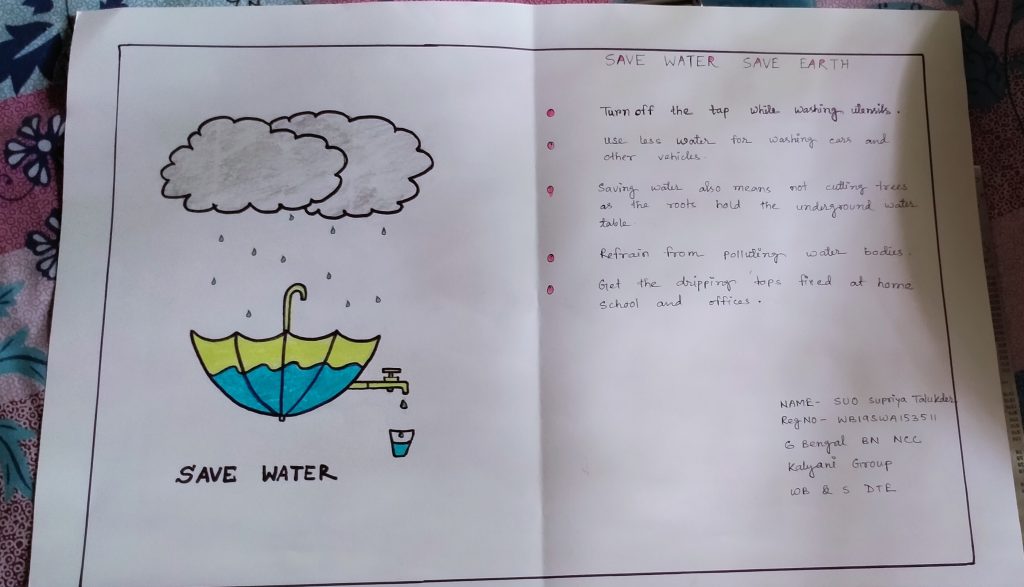 SAVE WATER
SAVE WATER SAVE EARTH
Turn off the tap while washing utensils.
Use less water for washing cars and
other vehicles.
Saving water also means not cutting trees
as the roots hold the underground water
table.
Refrain from polluting water bodies.
Get the dripping taps fixed at home
School and offices.
NAME- SUO Supriya Talukder
Reg NO - WB19SWA153511
6 Bengal BN NCC
Kalyani Group
WB & S DTE